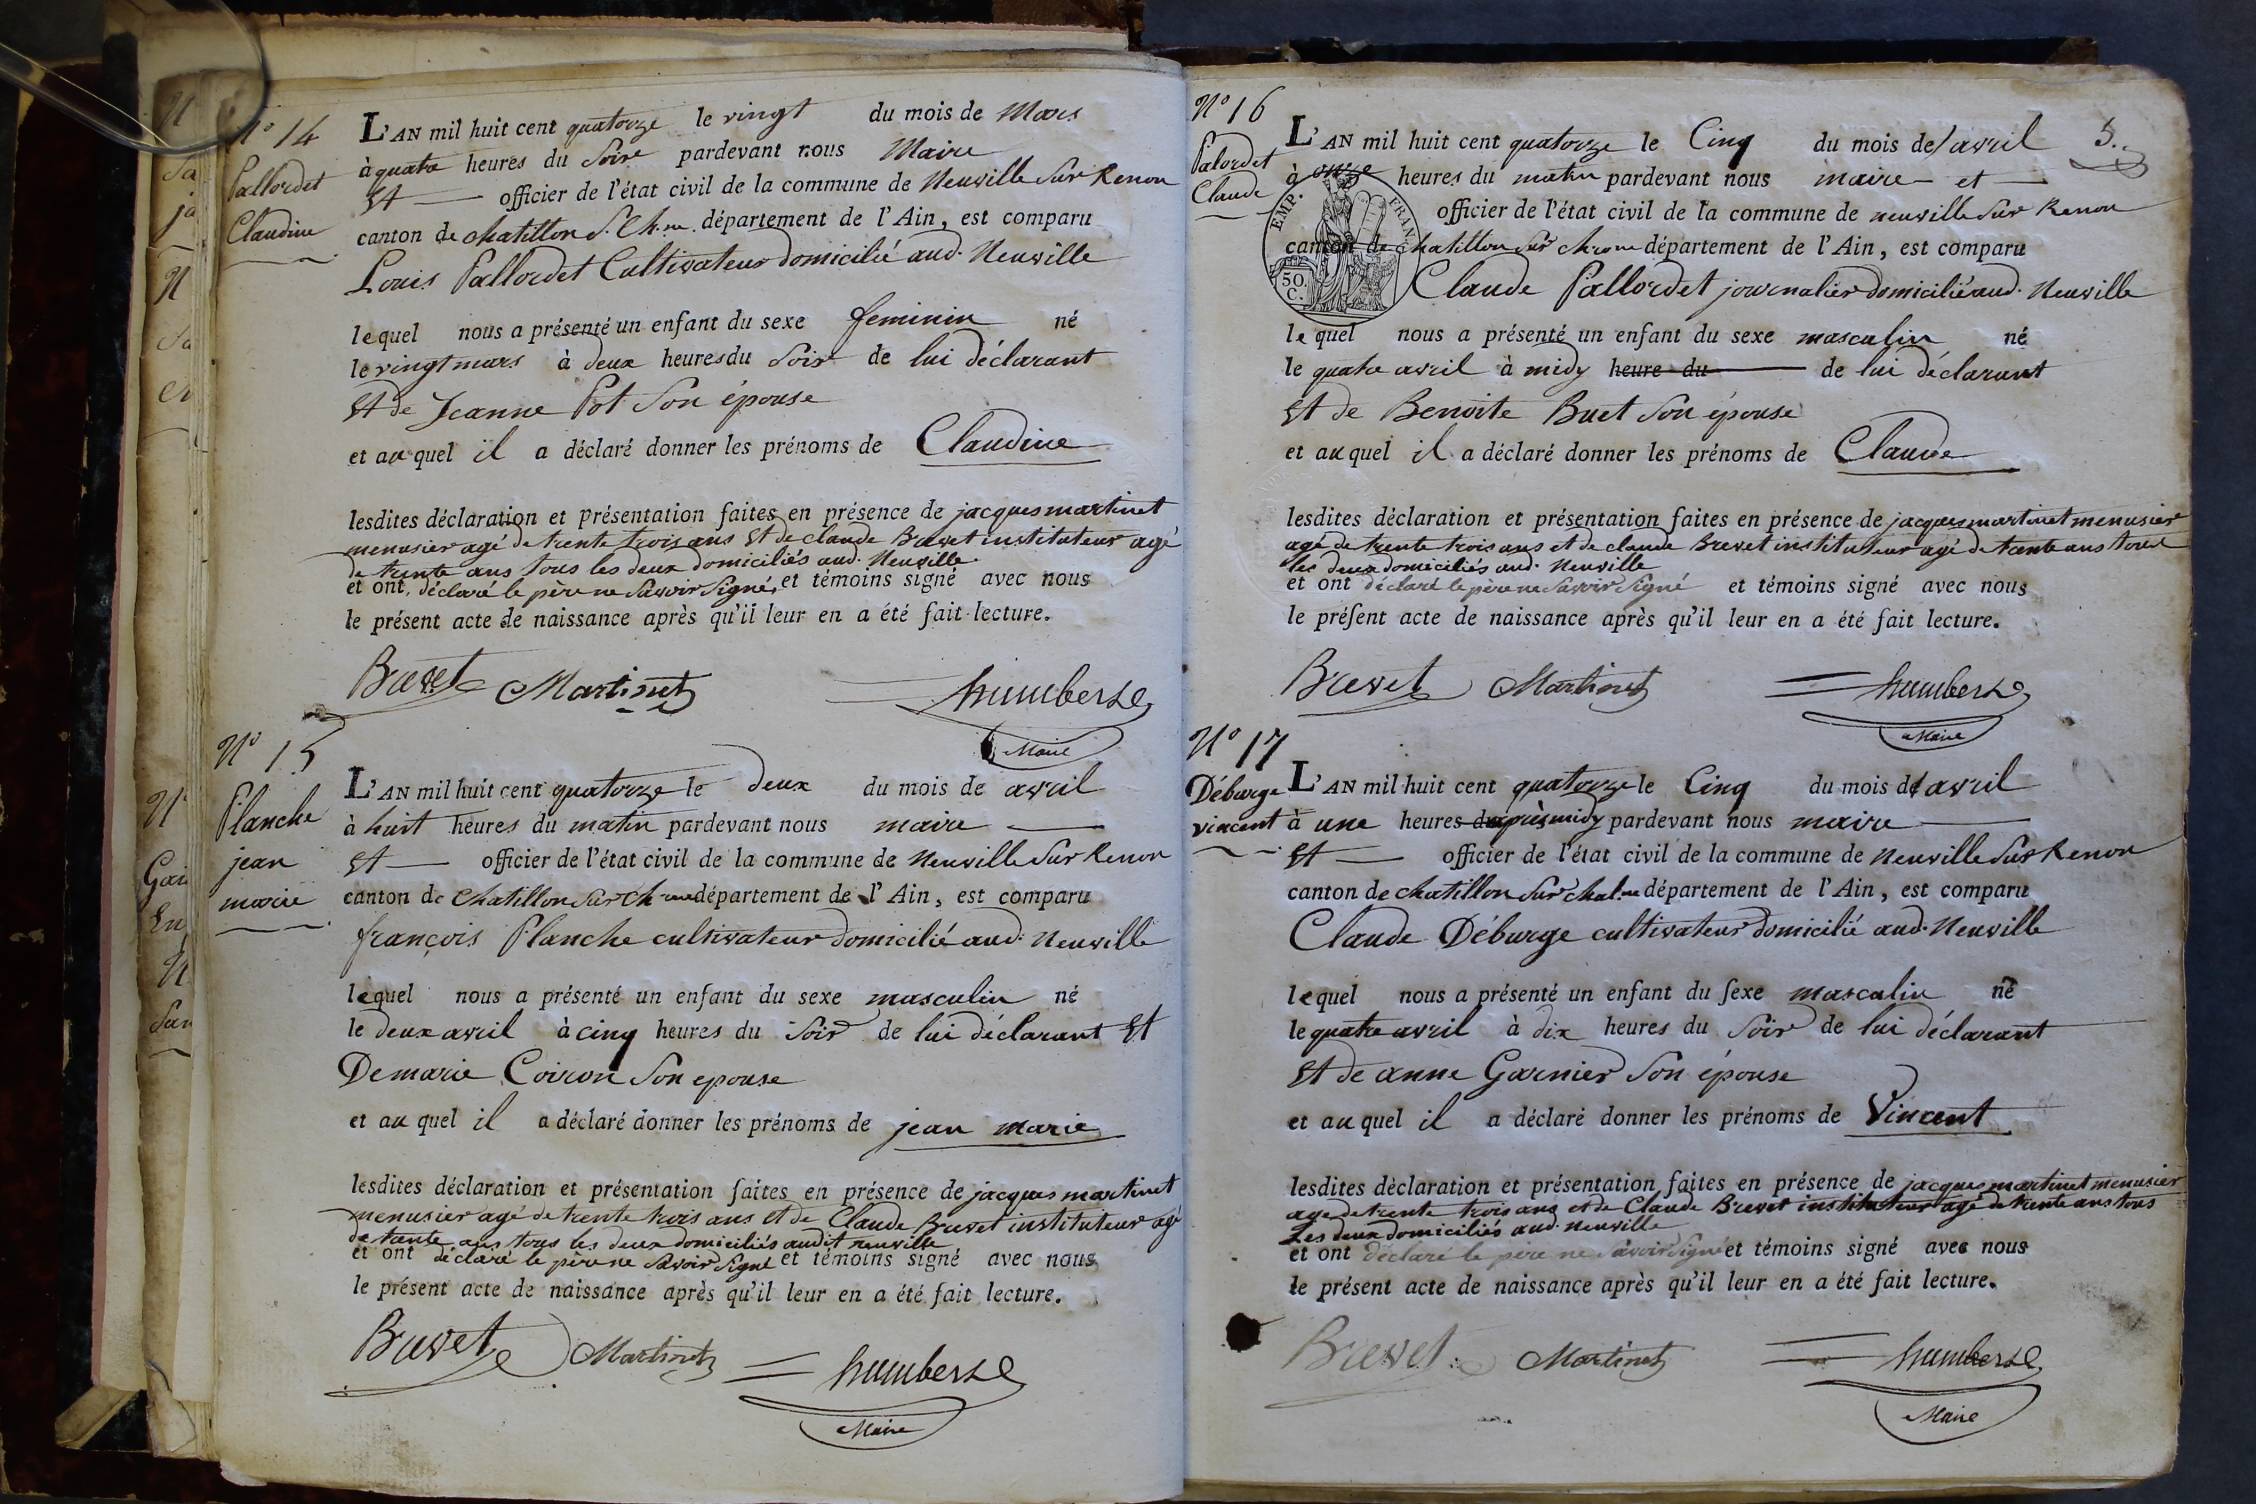 N° 14
Pallordet
Claudine
L'AN mil huit cent quatorze le vingt du mois de Mars
à quatre heures du Soire pardevant nous Maire
Et officier de l'état civil de la commune de Neuville Sur Renon
canton de chatillon S. Ch.ne département de l'Ain, est comparu
Louis Pallordet Cultivateur domicilié aud. Neuville
lequel nous a présenté un enfant du sexe feminin né
le vingt mars à deux heures du Soir de lui déclarant
Et de Jeanne Pot Son épouse
et au quel il a déclaré donner les prénoms de Claudine
lesdites déclaration et présentation faites en présence de jacques martinet
menusier agé de trente trois ans Et de claude Brevet instituteur agé
de trente ans tous les deux domiciliés aud. Neuville
et ont déclaré le père ne Savoir Signé, et témoins signé avec nous
le présent acte de naissance après qu'il leur en a été fait lecture.
Brevet Martinet humbert
Maire
N° 15
Planche
jean
marie
L'AN mil huit cent quatorze le deux du mois de avril
à huit heures du matin pardevant nous maire
Et officier de l'état civil de la commune de Neuville Sur Renon
canton de Chatillon Sur Ch ne département de l'Ain, est comparu
françois Planche cultivateur domicilié aud. Neuville
lequel nous a présenté un enfant du sexe masculin né
le deux avril à cinq heures du Soir de lui déclarant Et
De marie Coiron Son epouse
et au quel il a déclaré donner les prénoms de jean marie
lesdites déclaration et présentation faites en présence de jacques martinet
menusier agé de trente trois ans Et de Claude Brevet instituteur agé
de trente ans tous les deux domiciliés audit neuville
et ont déclaré le père ne Savoir Signé et témoins signé avec nous
le présent acte de naissance après qu'il leur en a été fait lecture.
Brevet Martinet humbert
Maire
N° 16
Palordet
Claude
5.
L'AN mil huit cent quatorze le Cinq du mois de avril
à onze heures du matin pardevant nous maire et
EMP. FRANC.
officier de l'état civil de la commune de neuville Sur Renon
canton de chatillon Sur chrone département de l'Ain, est comparu
50.
C.
Claude Pallordet journalier domicilié aud. Neuville
lequel nous a présenté un enfant du sexe masculin né
le quatre avril à midy heure du de lui déclarant
Et de Benoite Buet Son épouse
et au quel il a déclaré donner les prénoms de Claude
lesdites déclaration et présentation faites en présence de jacques martinet menusier
agé de trente trois ans et de claude Brevet instituteur agé de trente ans tous
les deux domiciliés aud. Neuville
et ont déclaré le père ne Savoir Signé et témoins signé avec nous
le présent acte de naissance après qu'il leur en a été fait lecture.
Brevet Martinet humbert
Maire
N° 17
Déburge
vincent
L'AN mil huit cent quatorze le Cinq du mois de avril
à une heures du après midy pardevant nous maire
Et officier de l'état civil de la commune de Neuville Sur Renon
canton de chatillon Sur chal.ne département de l'Ain, est comparu
Claude Déburge cultivateur domicilié aud. Neuville
lequel nous a présenté un enfant du sexe masculin né
le quatre avril à dix heures du Soir de lui déclarant
Et de anne Garnier Son épouse
et au quel il a déclaré donner les prénoms de Vincent
lesdites déclaration et présentation faites en présence de jacques martinet menusier
age de trente trois ans et de Claude Brevet instituteur agé de trente ans tous
Les deux domiciliés aud. neuville
et ont déclaré le père ne Savoir Signé et témoins signé avec nous
le présent acte de naissance après qu'il leur en a été fait lecture.
Brevet Martinet humbert
Maire